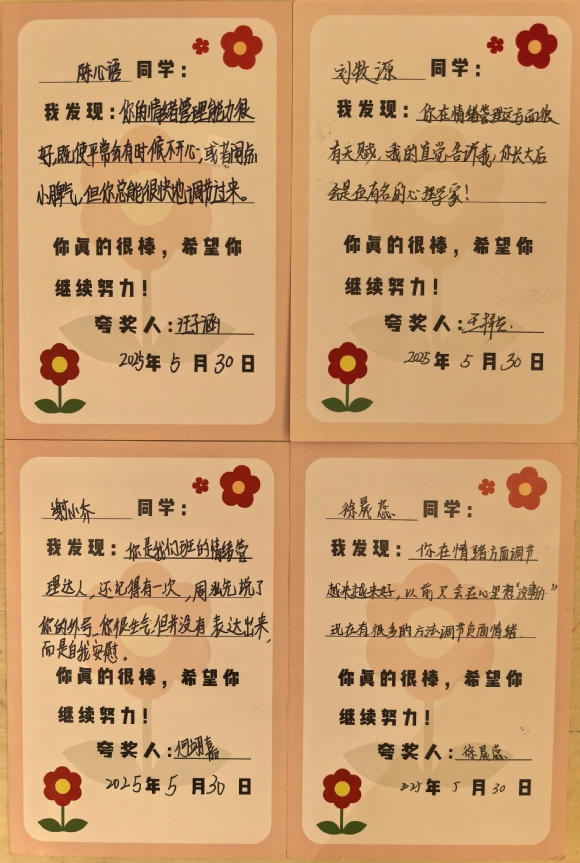 陈心语同学：
我发现：你的情绪管理能力很
好，既使平常会有时候不开心，或者闹点
小脾气，但你总能很快地调节过来。
你真的很棒，希望你
继续努力！
夸奖人：汪子涵
2025年5月30日
刘牧源同学：
我发现：你在情绪管理这方面很
有天赋，我的直觉告诉我，你长大后
会是一位有名的心理学家！
你真的很棒，希望你
继续努力！
夸奖人：王
2025年5月30日
谢小乔同学：
我发现：你是我们班的情绪管
理达人，还记得有一次，周泓先说了
你的外号，你很生气，但并没有表达出来，
而是自我安慰。
你真的很棒，希望你
继续努力！
夸奖人：何翊嘉
2025年5月30日
徐晟蕊同学：
我发现：你在情绪方面调节
越来越来好，以前只会在心里想“没事的”
现在有很多的方法调节负面情绪
你真的很棒，希望你
继续努力！
夸奖人：徐晟蕊
2025年5月30日